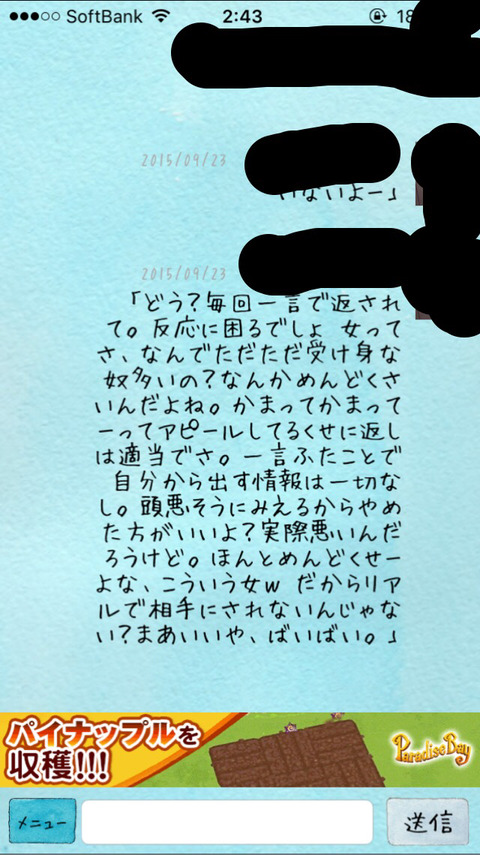 ●●●○○ SoftBank 2:43
2015/09/23
いないよー」
2015/09/23
「どう?毎回一言で返され
て。反応に困るでしょ 女って
さ、なんでただただ受け身な
奴多いの?なんかめんどくさ
いんだよね。かまってかまって
ーってアピールしてるくせに返し
は適当でさ。一言ふたことで
自分から出す情報は一切な
し。頭悪そうにみえるからやめ
た方がいいよ?実際悪いんだ
ろうけど。ほんとめんどくせー
よな、こういう女w だからリア
ルで相手にされないんじゃな
い?まあいいや、ばいばい。」
パイナップルを
収穫!!!
Paradise Bay
メニュー
送信